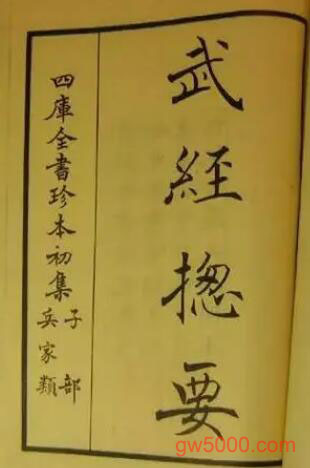 武經揔要
四庫全書珍本初集
子部
兵家類
gw5000.com